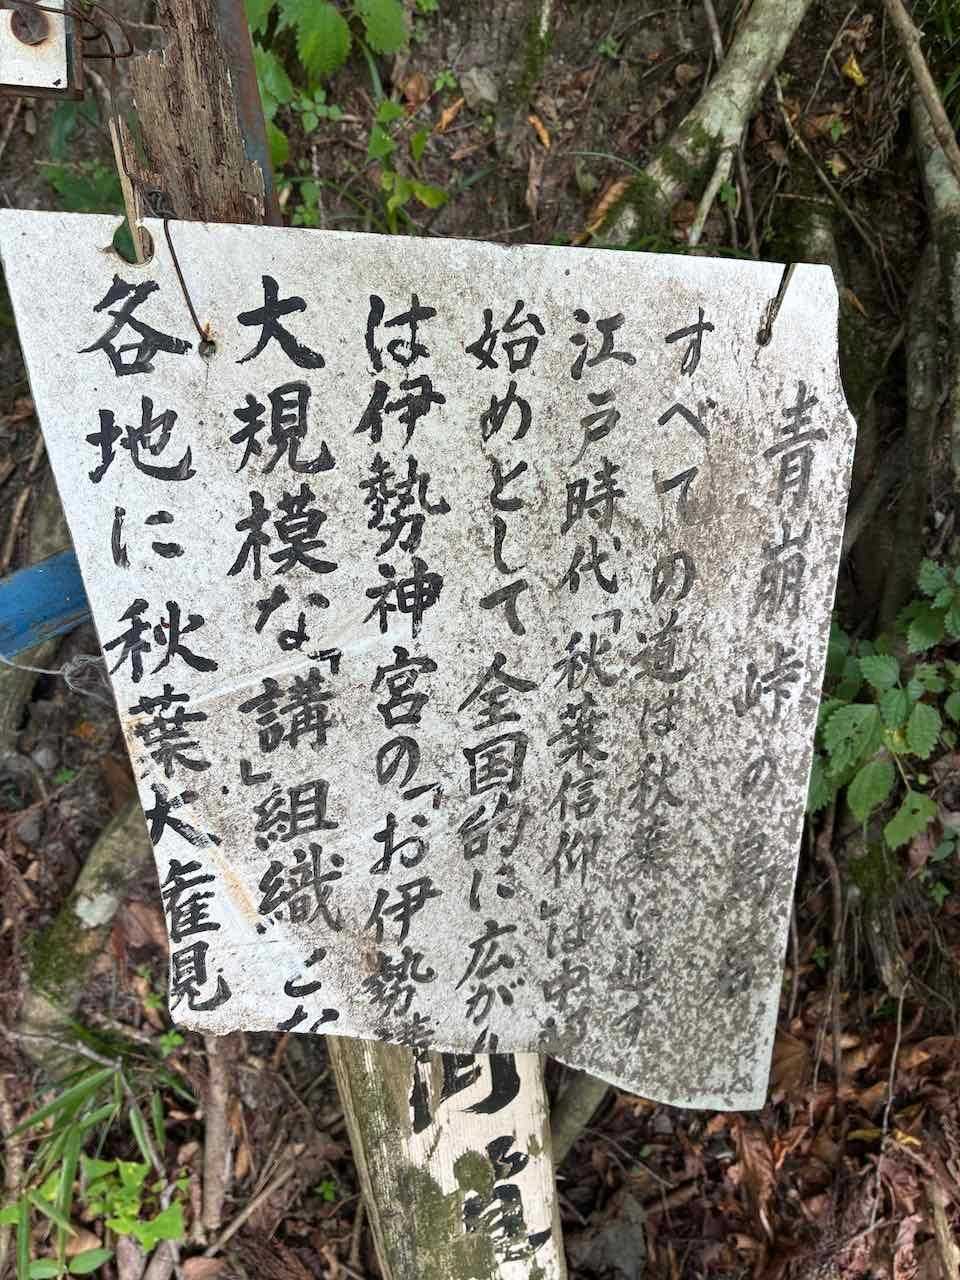 青崩峠の
すべての道は秋葉に通ず
江戸時代「秋葉信仰」は中部
始めとして全国的に広がり
は伊勢神宮の「お伊勢講
大規模な「講」組織こな
各地に秋葉大権現